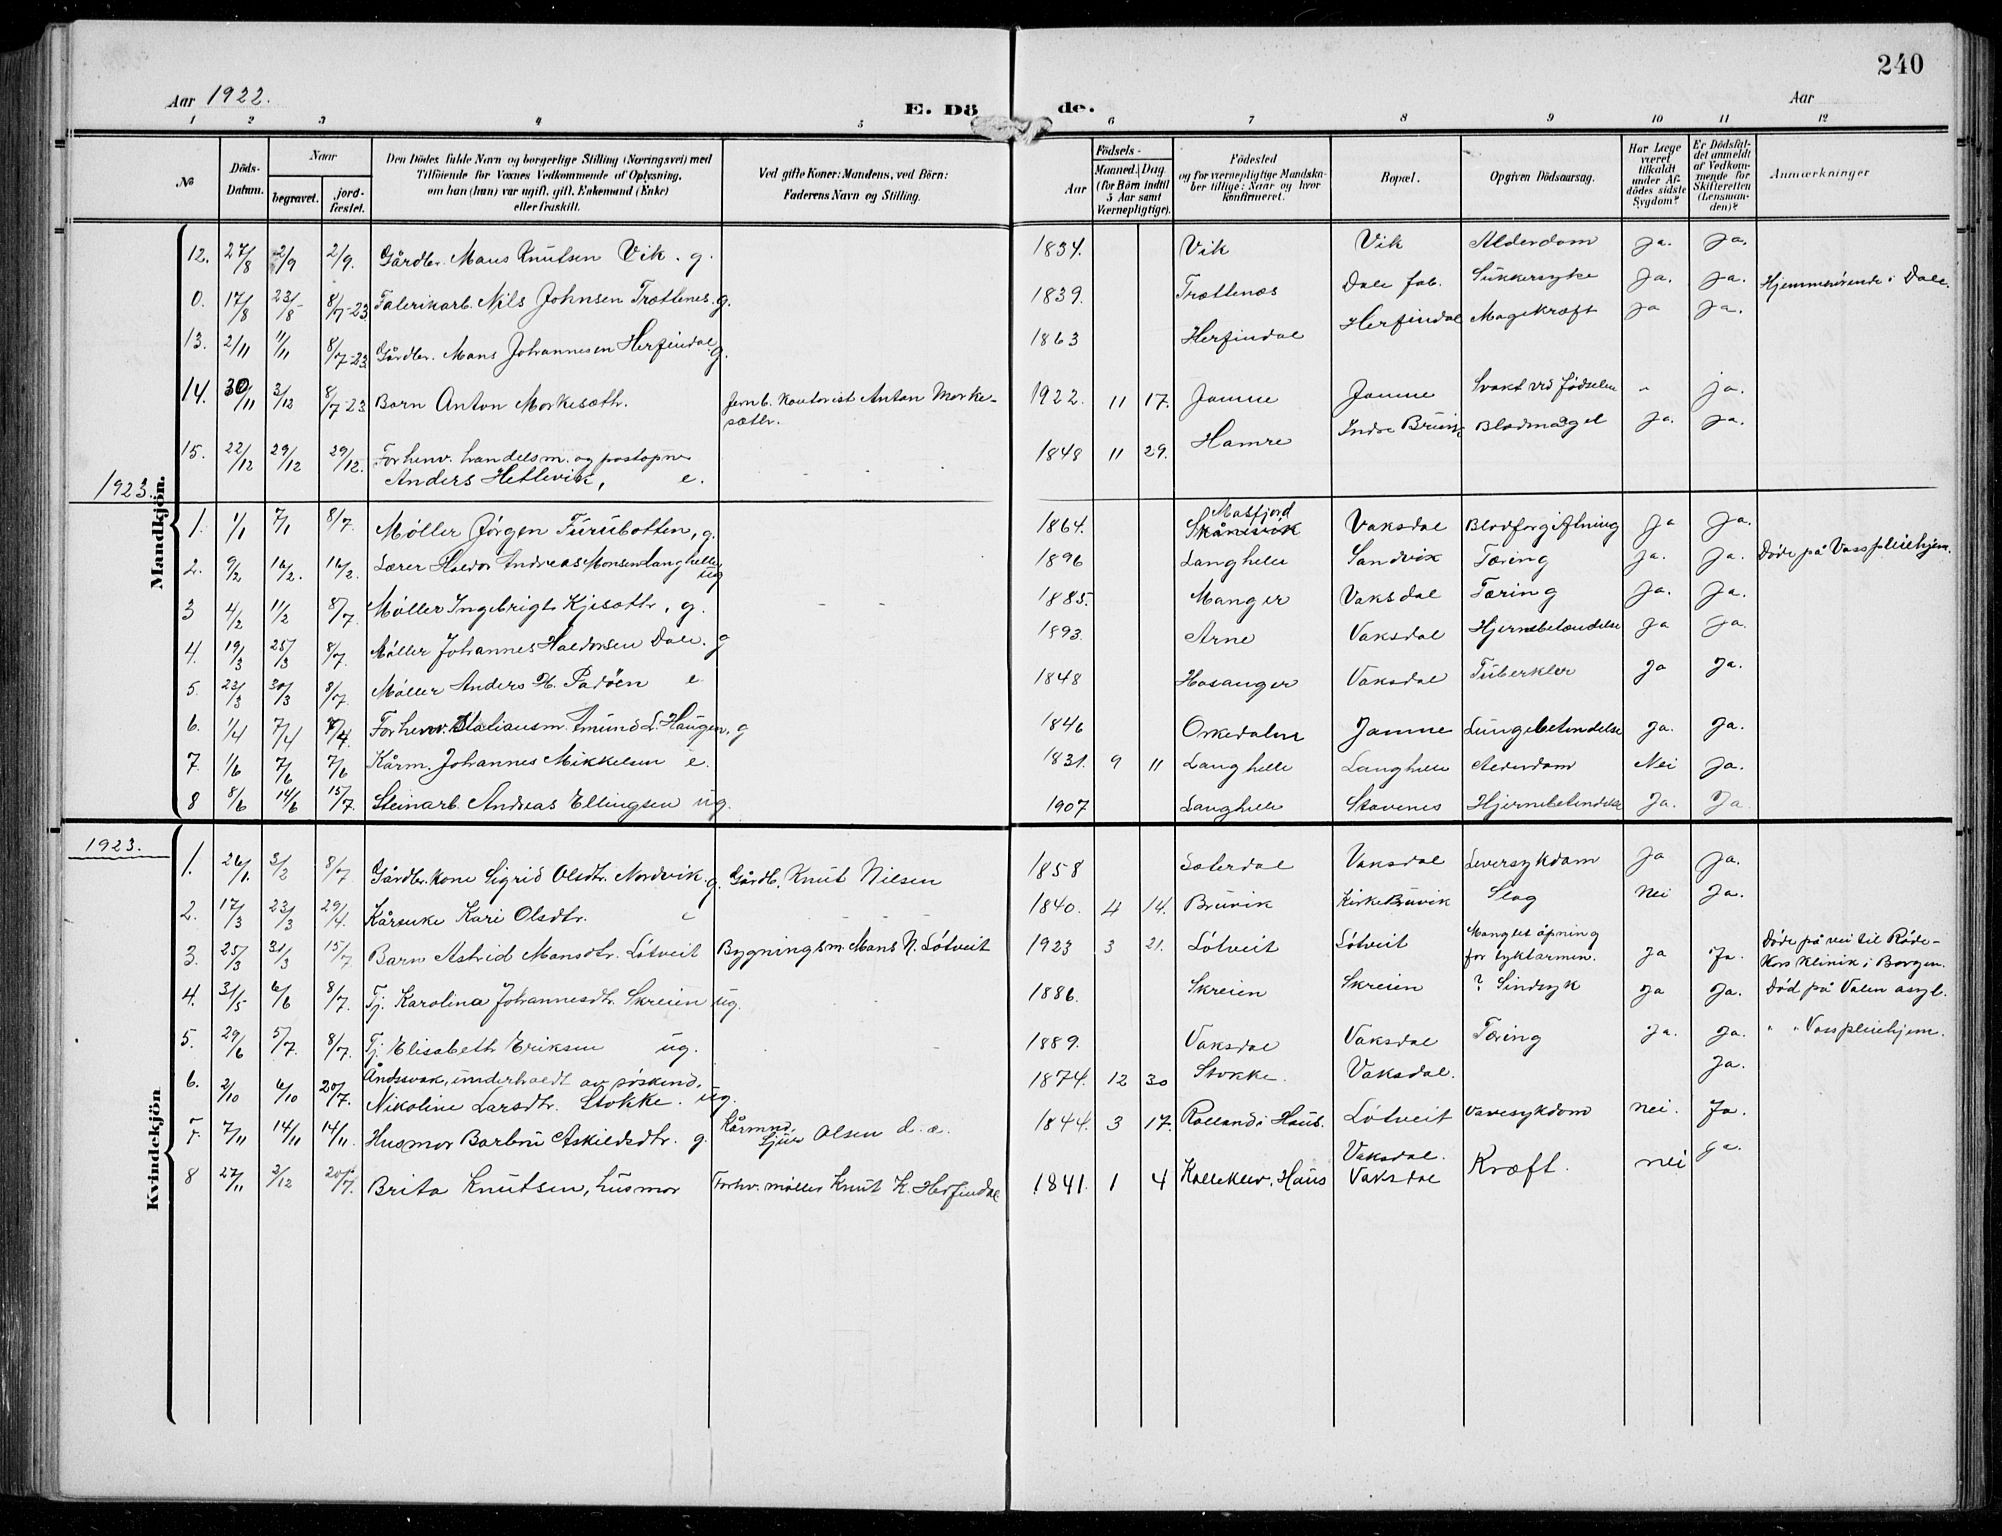 240
Aar 1922.
E. Dö de.
Aar
1 2 3 4 5 6 7 8 9 10 11 12
No
Döds-Datum.
Naar
begravet.
jord-fæstet.
Den Dödes fulde Navn og borgerlige Stilling (Næringsvei) med
Tilföiende for Voxnes Vedkommende af Oplysning,
om han (hun) var ugift, gift, Enkemand (Enke)
eller fraskilt.
Ved gifte Koner: Mandens, ved Börn:
Faderens Navn og Stilling.
Födsels-
Aar
Maaned. Dag
(for Börn indtil
5 Aar samt
Værnepligtige).
Födested
og for værnepligtige Mandska-
ber tillige: Naar og hvor
konfirmeret.
Bopæl.
Opgiven Dödsaarsag.
Har Læge
været
tilkaldt
under Af-
dödes sidste
Sygdom?
Er Dödsfal-
det anmeldt
af Vedkom-
mende for
Skifteretten
(Lensman-
den)?
Anmærkninger
Mandkjön.
12. 27/8 2/9 2/9. Gårdbr. Mans Knutsen Vik. g. 1834. Vik Vik Alderdom ja. ja.
0. 17/8 23/8 8/7-23 Fabrikarb. Nils Johnsen Trættenes. g. 1839. Trættenæs Dale fab. Sukkersyke ja. ja. Hjemmehørende i Dale.
13. 2/11 11/11 8/7-23 Gårdbr. Mans Johannesen Herfindal g. 1863 Herfindal Herfindal Magekræft ja ja.
14. 30/11 3/12 8/7-23 Barn Anton Morkesæth. Jernb. kontorist Anton Morke-
sæth. 1922. 11 17. Jamne Jamne Svakt ved fødselen - ja.
15. 22/12 29/12 29/12. Forhenv. handelsm. og postopn.
Anders Hetlevik, e. 1848 11 29. Hamre Indre Bruvik Blodmangel ja. ja.
1923.
1. 1/1 7/1 8/7. Møller Jørgen Furubotten, g. 1864. Masfjord
Skånevik Vaksdal Blodforgiftning ja ja.
2. 9/2 16/2. 16/2. Lærer Haldor Andreas Monsen Langhelle
ug 1896 Langhelle Sandvik Tæring ja. ja. Døde på Voss pleiehjem.
3 4/2 11/2 8/7. Møller Ingebrigt Kjesæth, g. 1885. Manger Vaksdal Tæring ja. ja.
4. 19/3 25/3 8/7. Møller Johannes Haldorsen Dale. g 1893. Arne Vaksdal Hjernebetændelse ja ja.
5. 23/3 30/3 8/7. Møller Anders H. Padøen e. 1848 Hosanger Vaksdal Tuberkler ja ja.
6. 1/4 7/4 7/4. Forhenv. Stationsm. Amund L. Haugen, g 1846 Orkedalen Jamne Lungebetendelse ja. ja.
7. 1/6 7/6 7/6 Kårm. Johannes Mikkelsen e. 1831. 9 11 Langhelle Langhelle Alderdom Nei ja.
8 8/6 14/6 15/7. Steinarb. Andreas Ellingsen ug. 1907 Langhelle Stavenes Hjernebetendelse Ja. Ja
1923.
Kvindekjön
1. 26/1. 3/2 8/7 Gårdbr. kone Sigrid Olsdtr. Nordvik. g. Gårdb. Knut Nilsen 1858 Vaksdal Leversykdom ja ja.
2. 17/3 23/3 29/4. Kårenke Kari Olsdtr. 1840. 4 14. Bruvik Kirke Bruvik Slag nei Ja.
3. 25/3 31/3 15/7 Barn Astrid Mansdtr. Løtveit Bygningsm. Mans N. Løtveit 1923 3 21. Løtveit Løtveit Mangler åpning
for tyktarmen. ja Ja. Døde på vei til Røde-
Kors klinik i Bergen.
4. 31/5 6/6 8/7. Tj. Karolina Johannesdtr. Skreien ug. 1886. Skreien Skreien ? Sindsyk ja Ja. Død på Valen asyl.
5. 29/6 5/7. 8/7. Tj. Elisabeth Eriksen ug. 1889. Vaksdal Vaksdal Tæring ja. ja. " " Voss pleiehjem.
6. 2/10 6/10 20/7. Åndssvak, underholdt av søskend,
Nikoline Larsdtr. Stokke. ug. 1874. 12 30 Stokke. Vaksdal. Ja.
7. 7/11 14/11 14/11. Husmor Barbru Askildsdtr. g. Kårmand
Sjur Olsen d. æ. 1844. 3 17. Rolland i Haus. Løtveit nei. Ja.
8 27/11 2/12 20/7. Brita Knutsen, husmor Forhv. møller Knut K. Herfindal 1841. 1 4 Kalleklev, Haus Vaksdal.
Vaksdal Kræft. nei ja.